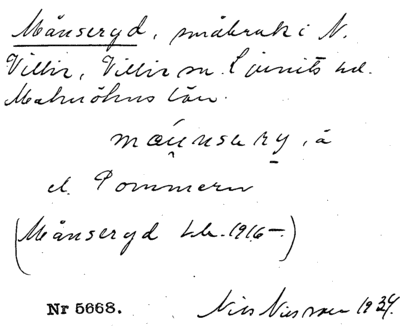 Månseryd, småbruk i N.
Villie, Villie sn. Ljunits hd.
Malmöhus län.
månnsery, å
el. Pommern
(Månseryd kk. 1916-)
Nr 5668. Nils Nilsson 1934.